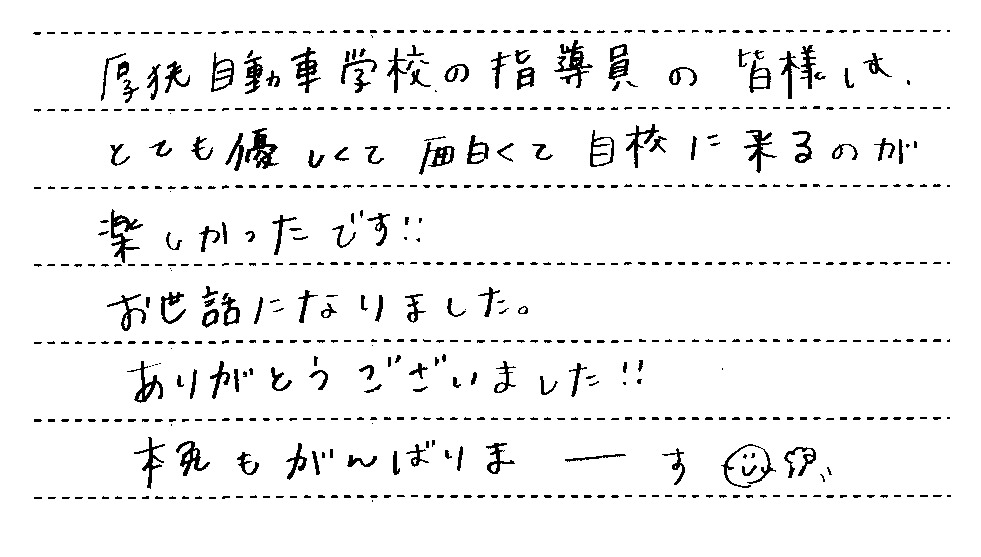 厚狭自動車学校の指導員の皆様は、
とても優しくて面白くて自校に来るのが
楽しかったです!!
お世話になりました。
ありがとうございました!!
本免もがんばりまーす